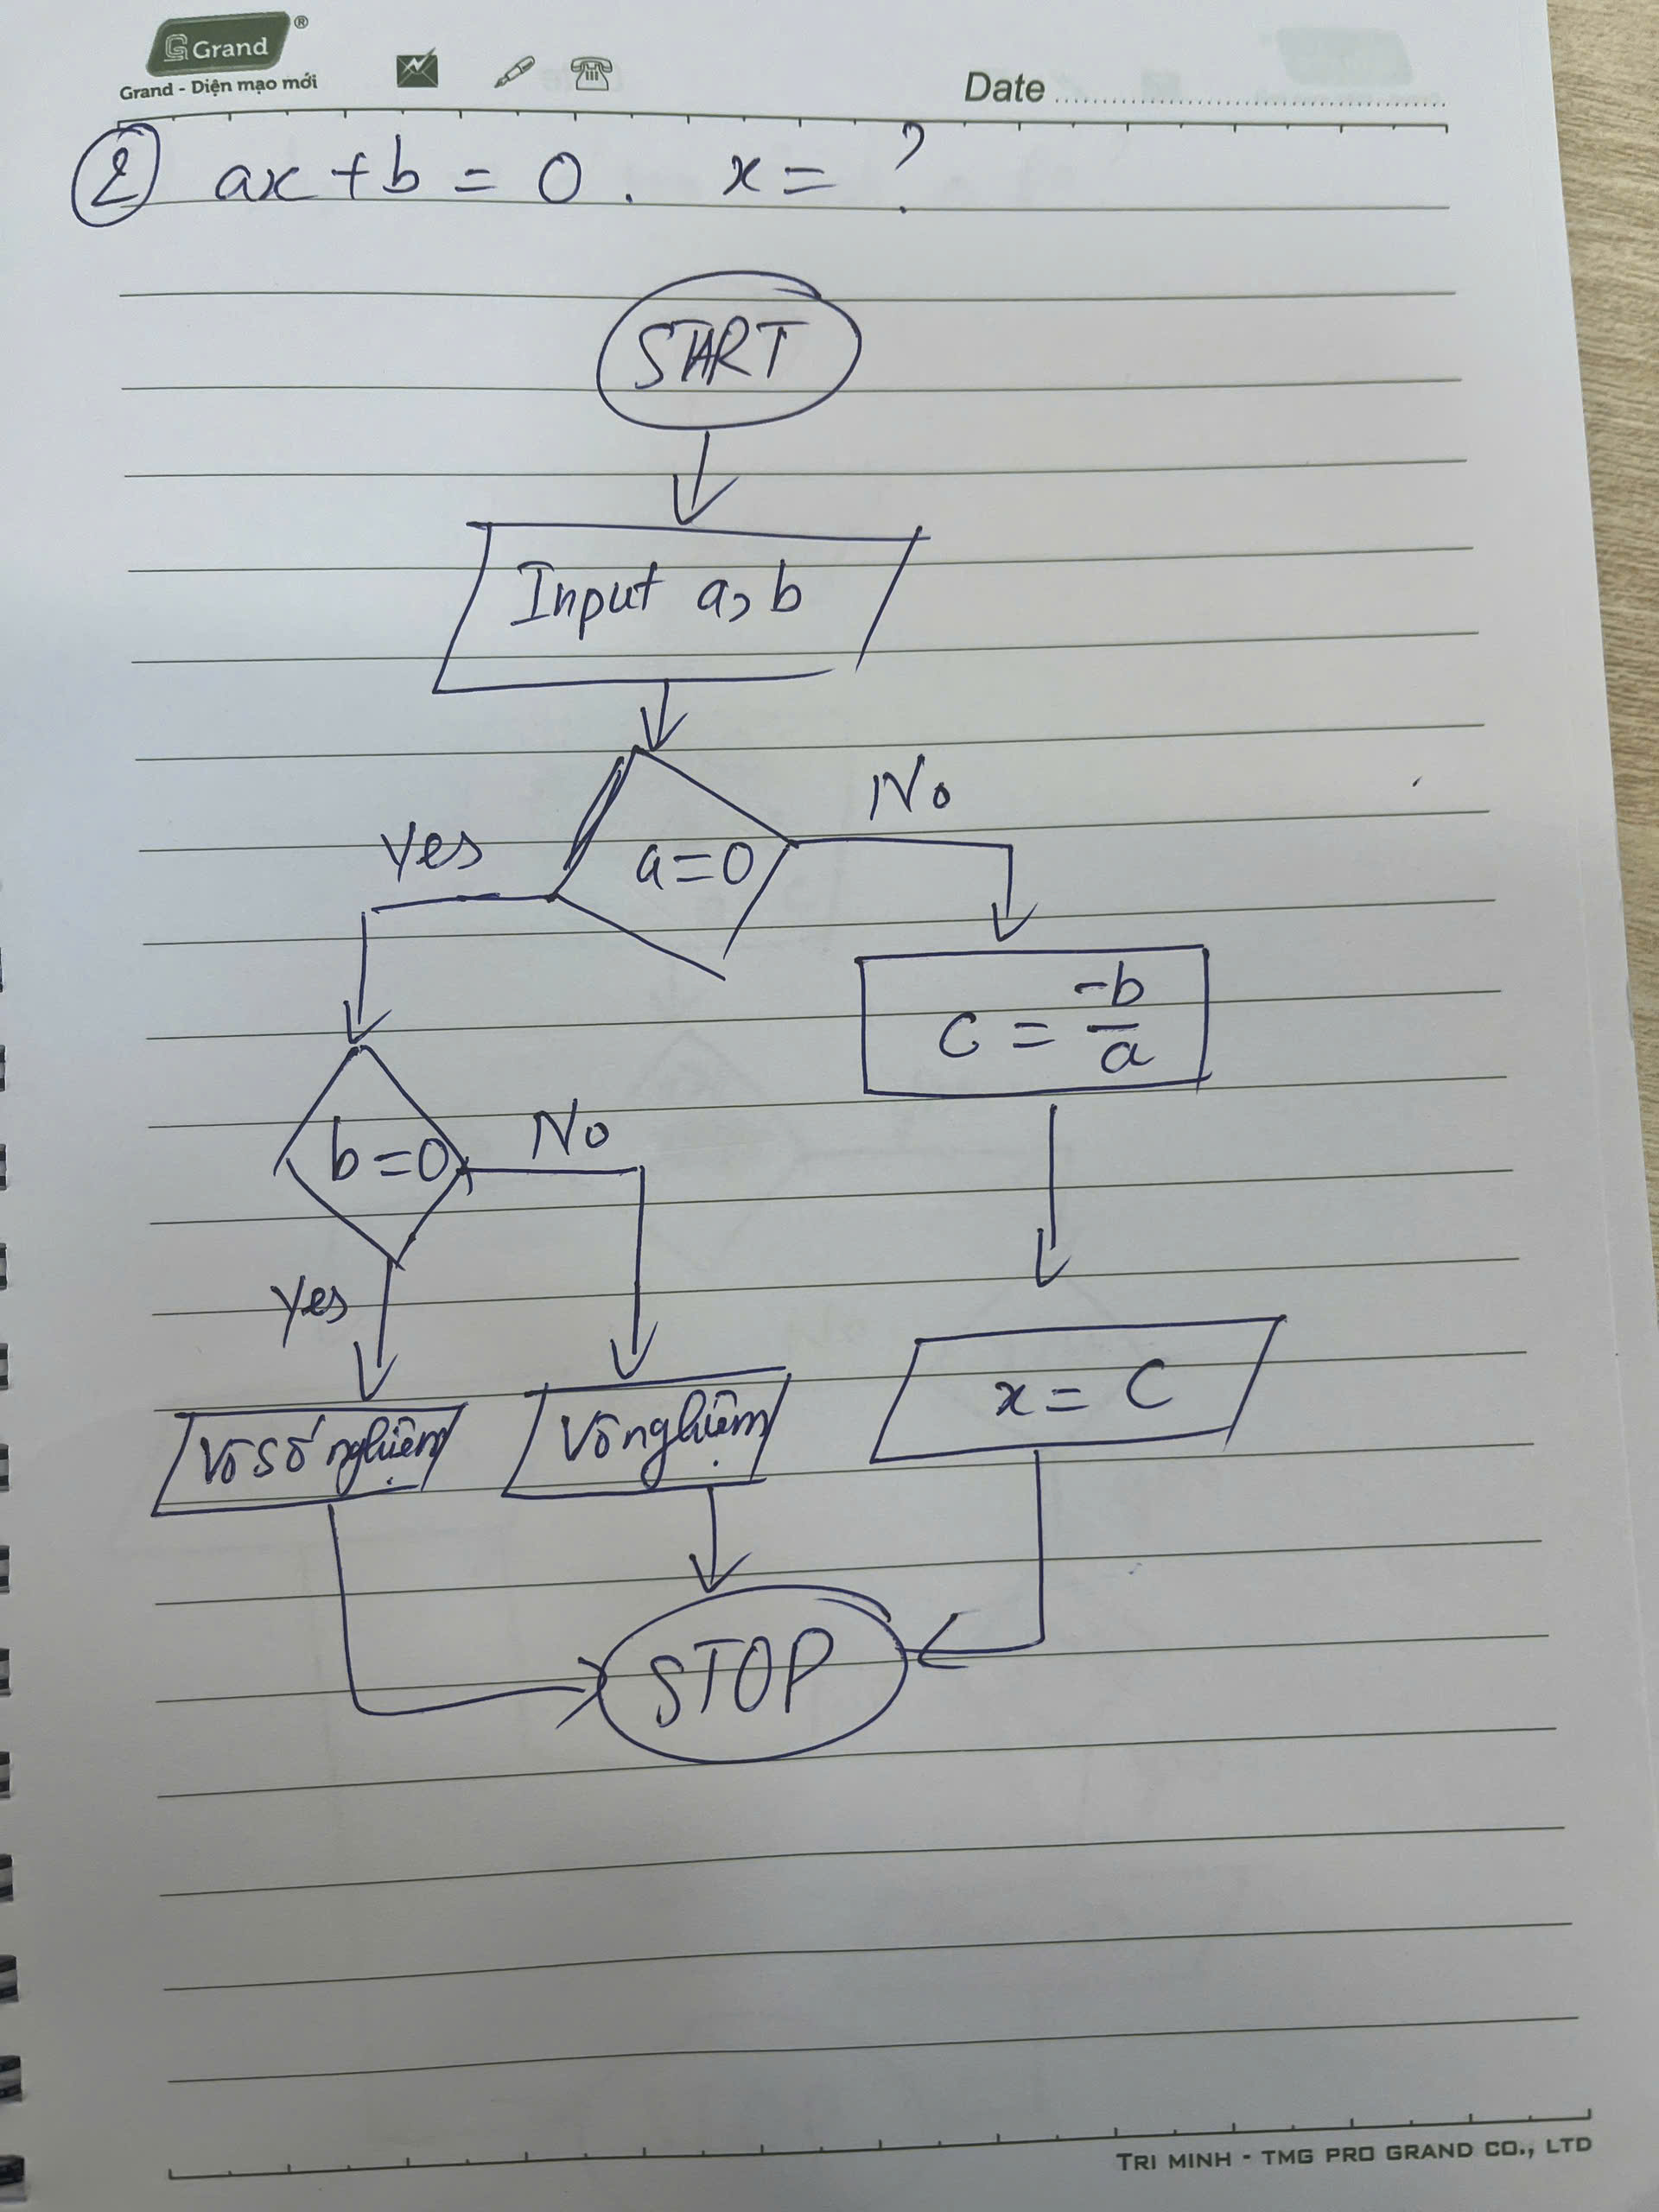 Grand ®
Grand - Diện mạo mới
Date
② ax + b = 0. x = ?
START
Input a, b
a = 0
Yes
No
c = -b/a
b = 0
No
Yes
Vô số nghiệm
Vô nghiệm
x = C
STOP
TRI MINH - TMG PRO GRAND CO., LTD